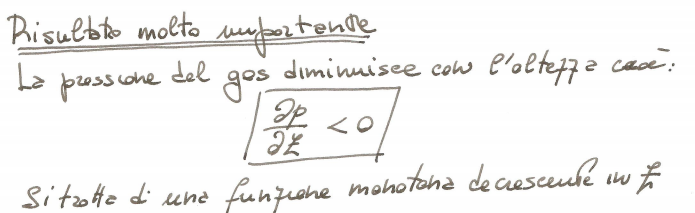 Risultato molto importante
La pressione del gas diminuisce con l'altezza cioè:
∂p/∂z < 0
Si tratta di una funzione monotona decrescente in z